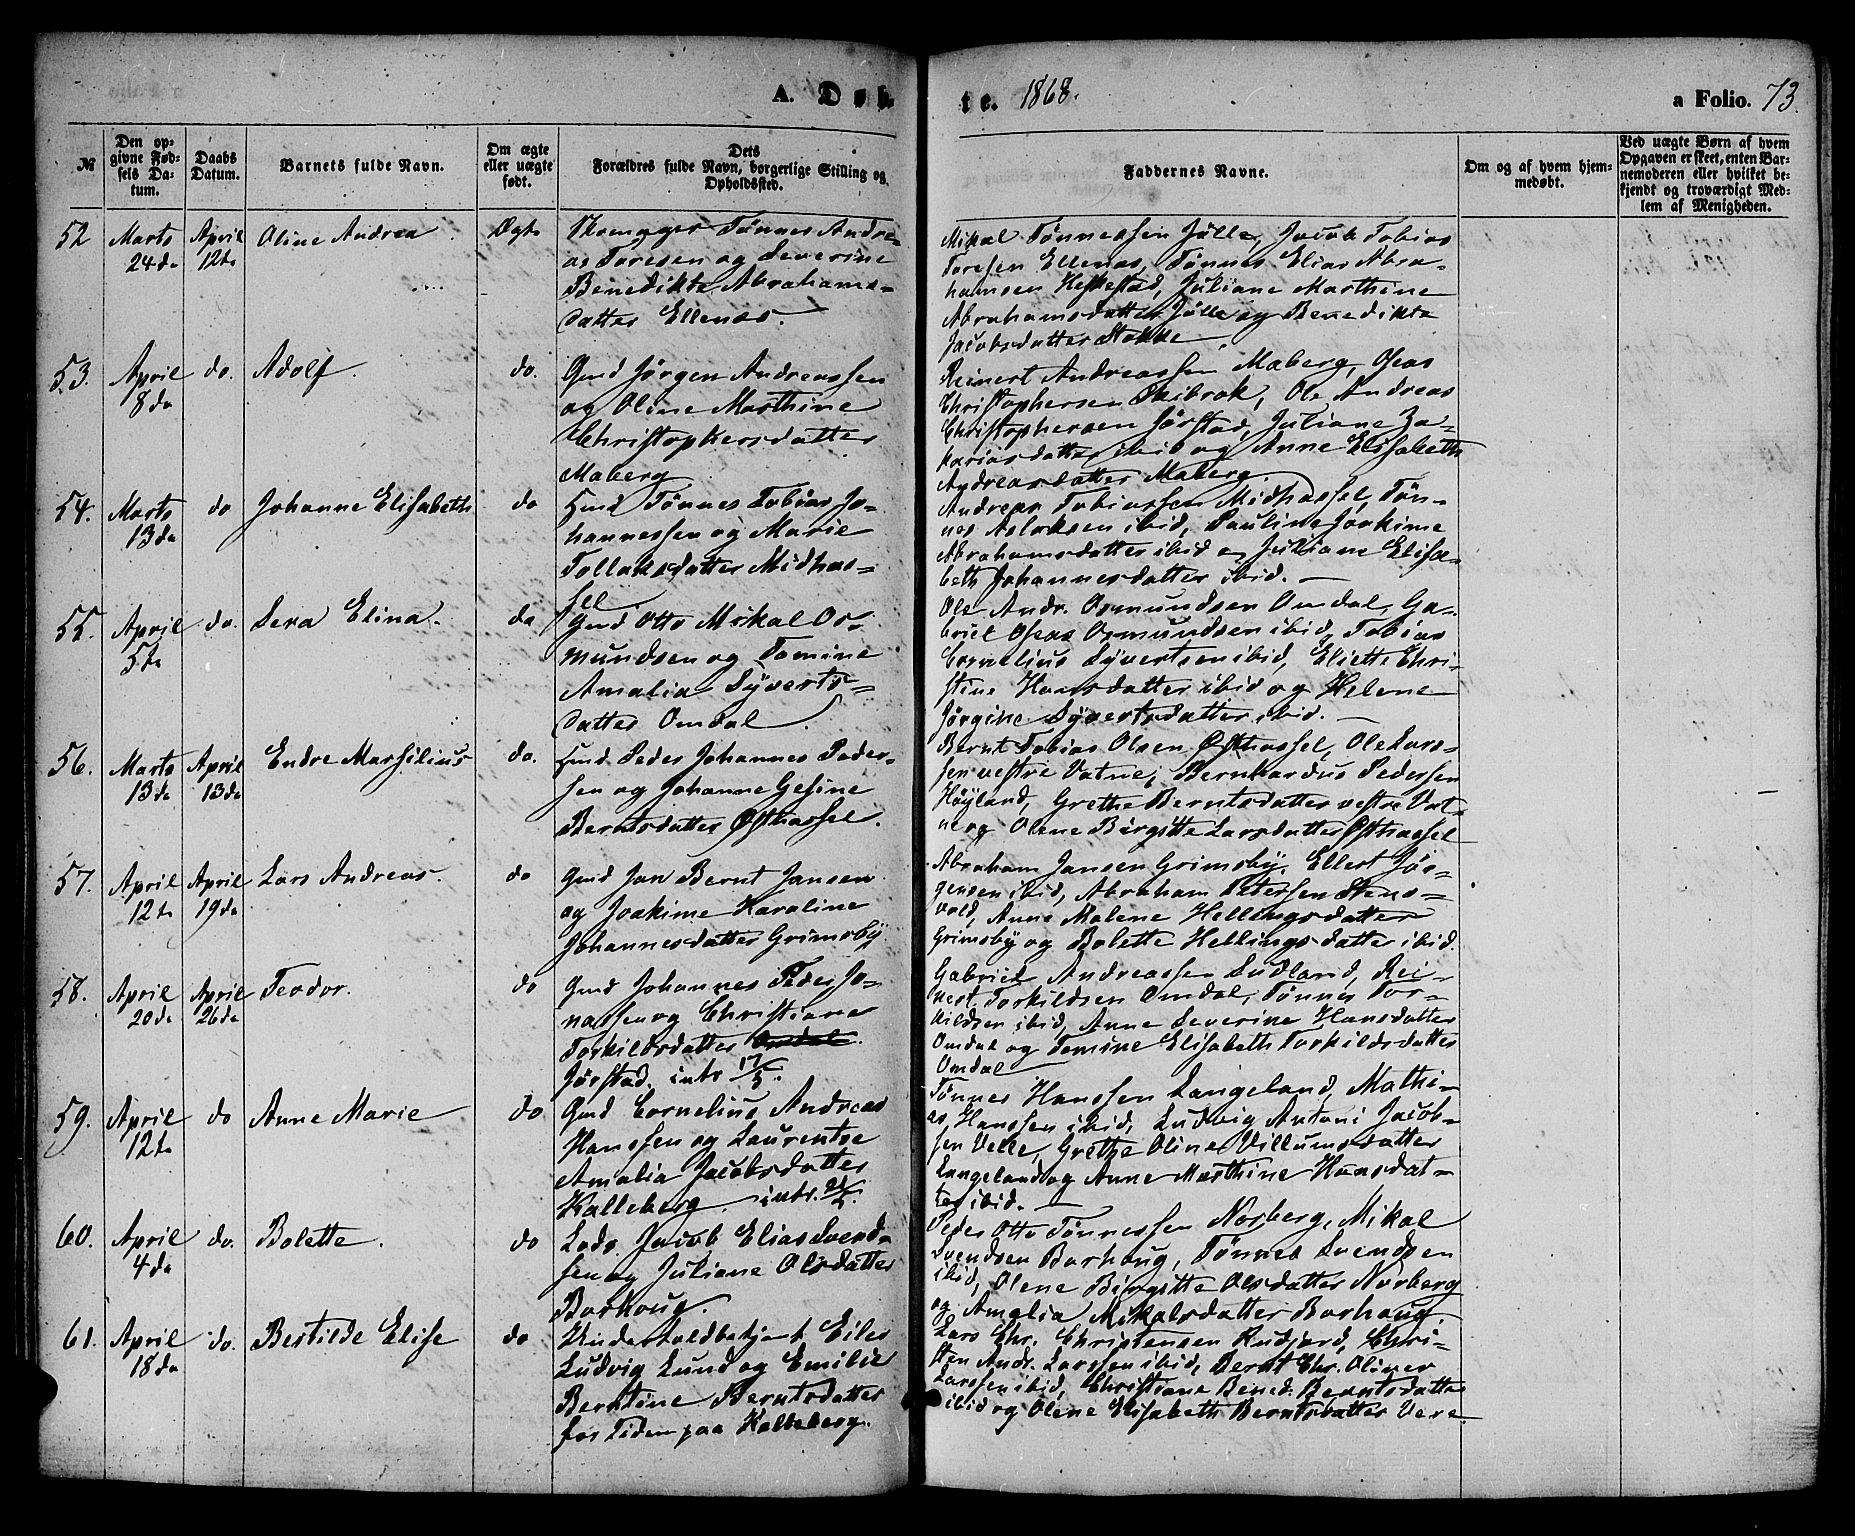 A. Døb-
te. 1868.
a Folio. 73.
№
Den op-
givne Fød-
sels Da-
tum.
Daabs
Datum.
Barnets fulde Navn.
Om ægte
eller uægte
født.
Dets
Forældres fulde Navn, borgerlige Stilling og
Opholdssted.
Faddernes Navne.
Om og af hvem hjem-
medøbt.
Ved uægte Børn af hvem
Opgaven er skeet, enten Bar-
nemoderen eller hvilket be-
kjendt og troværdigt Med-
lem af Menigheden.
52 Marts 24de April 12te Oline Andrea. Ægte
Tønnes Andre-
as Toresen og Severine
Benedikte Abrahams-
datter Ellenæs.
Mikal Tønnessen Jølle, Jacob Tobias
Toresen Ellenæs, Tønnes Elias Abra-
hamsen Heskestad, Juliane Marthine
Abrahamsdatter Jølle og Benedikte
Jacobsdatter Stokke.
53. April 8de do. Adolf. do.
Gmd Jørgen Andreassen
og Oline Marthine
Christophersdatter
Maberg
Reinert Andreassen Maberg, Oseas
Christophersen Skibrok, Ole Andreas
Christophersen Jørstad, Juliane Za-
kariasdatter ibid og Anne Elisabeth
Andreasdatter Maberg.
54. Marts 13de do Johanne Elisabeth do
Hmd Tønnes Tobias Jo-
hannessen og Marie
Tollaksdatter Midhas-
sel
Andreas Tobiassen Midhassel, Tøn-
nes Aslaksen ibid, Pauline Joakime
Abrahamsdatter ibid og Juliane Elisa-
beth Johannesdatter ibid.
55. April 5te do. Lera Elina. do
Gmd Otto Mikal Os-
mundsen og Tomine
Amalia Syverts-
datter Omdal
Ole Andr. Osmundsen Omdal, Ga-
briel Oseas Osmundsen ibid, Tobias
Cornelius Syvertsen ibid, Eliette Chri-
stine Hansdatter ibid og Helene
Jørgine Syvertsdatter ibid.
56. Marts 13de April 13de Endre Marsilius do.
Hmd Peder Johannes Peder-
sen og Johanne Gesine
Berntsdatter Østhassel.
Bernt Tobias Olsen Østhassel, Ole Lars-
sen vestre Vatne, Bernhardus Pedersen
Høyland, Grethe Berntsdatter vestre Vat-
ne og Olene Birgitte Larsdatter Østhassel
57. April 12te April 19de Lars Andreas. do
Gmd Jan Bernt Jansen
og Joakime Karoline
Johannesdatter Grimsby.
Abraham Jansen Grimsby, Ellert Jør-
gensen ibid, Abraham Petersen Stens-
vold, Anne Malene Hellingsdatter
Grimsby og Bolette Hellingsdatter ibid.
58. April 20de April 26de Teodor. do
Gmd Johannes Peder Jo-
nassen og Christiane
Torkildsdatter Omdal.
Jørstad. intr 17/5.
Gabriel Andreassen Sudland, Rei-
nert Torkildsen Omdal, Tønnes Tor-
kildsen ibid, Anne Severine Hansdatter
Omdal og Tomine Elisabeth Torkildsdatter
Omdal
59. April 12te do Anne Marie do
Gmd Cornelius Andreas
Hanssen og Laurentse
Amalia Jacobsdatter
Kalleberg. intr.
Tønnes Hanssen Langeland, Mathi-
as Hanssen ibid, Ludvig Antoni Jacob-
sen Velle, Grethe Oline Villumsdatter
Langeland og Anne Marthine Hansdat-
ter ibid.
60. April 4de do. Bolette. do
Lods Jacob Elias Svend-
sen og Juliane Olsdatter
Borhoug.
Peder Otto Tønnessen Norberg, Mikal
Svendsen Borhoug, Tønnes Svendsen
ibid, Olene Birgitte Olsdatter Norberg
og Amalia Mikalsdatter Borhoug.
61. April 18de do. Bertilde Elise do
Undertoldbetjent Eiler
Ludvig Lund og Emilie
Berntine Berntsdatter
for Tiden paa Kalleberg.
Lars Chr. Christensen Rudjord, Chri-
sten Andr. Larssen ibid, Bernt Chr. Oliver
Larssen ibid, Christiane Bened. Berntsdatter
ibid og Olene Elisabeth Berntsdatter Vere